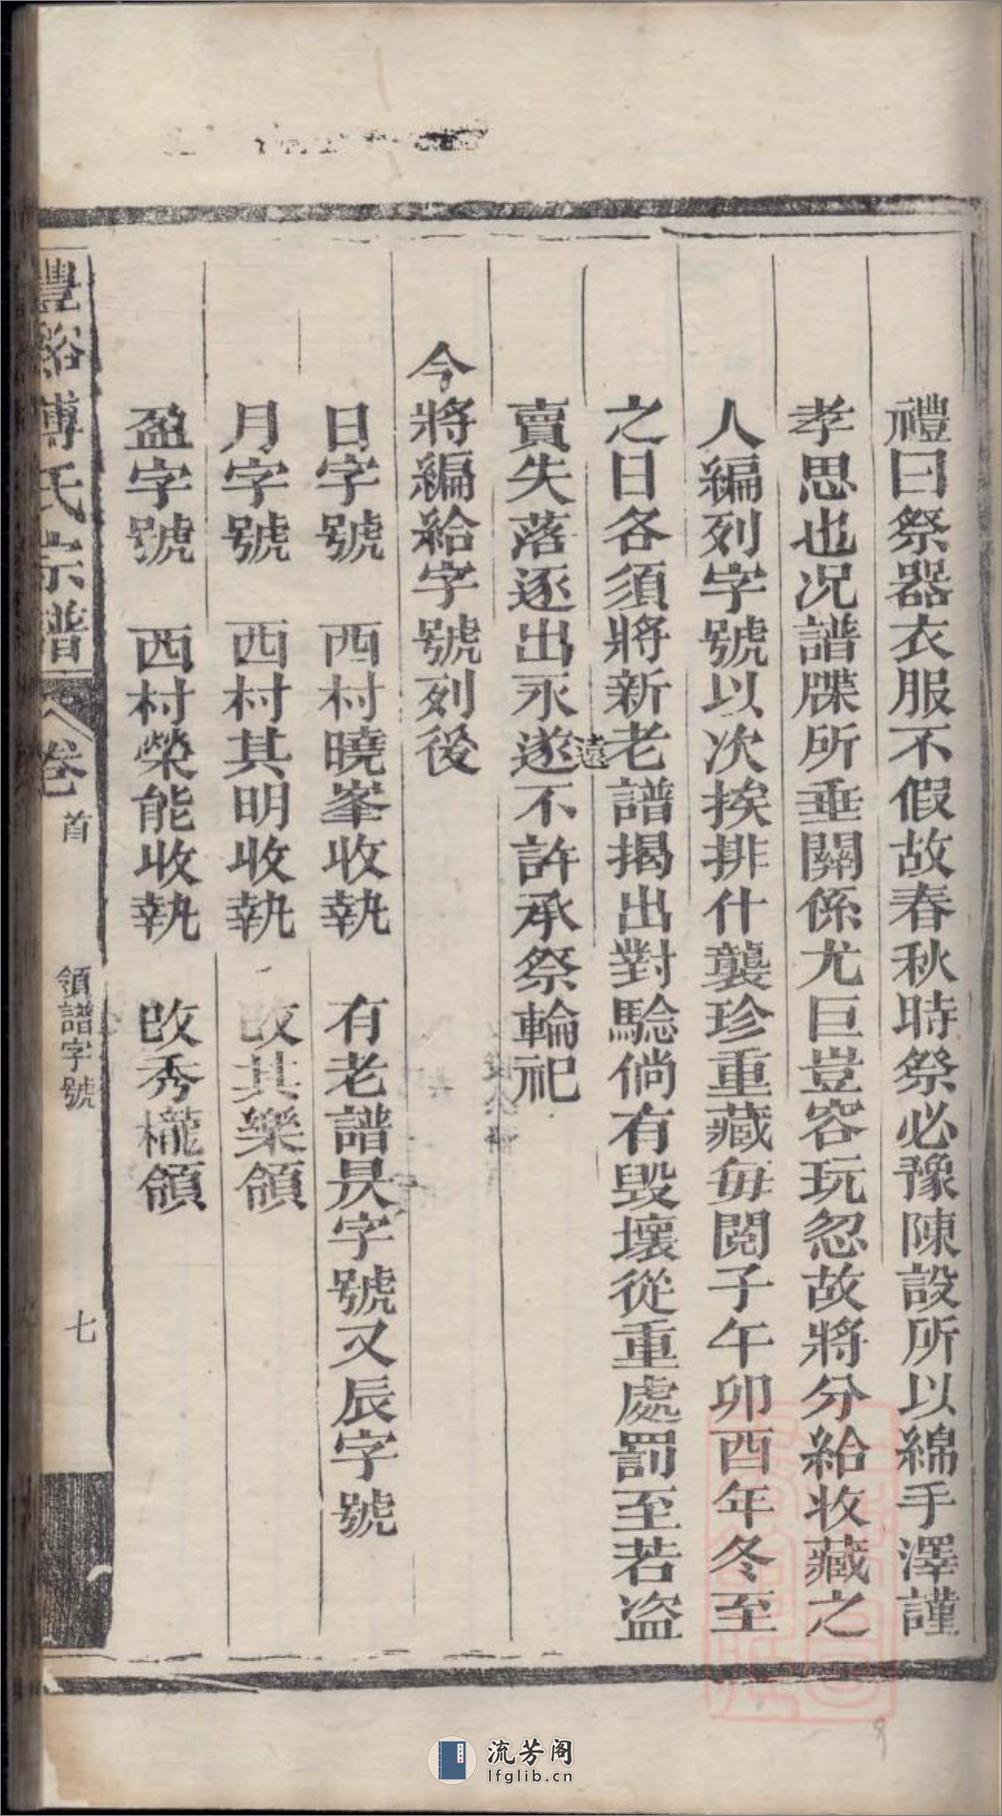 禮曰祭器衣服不假故春秋時祭必豫陳設所以綿手澤謹
孝思也况譜牒所垂關係尤巨豈容玩忽故將分給收藏之
人編列字號以次挨排什襲珍重藏毎閱子午卯酉年冬至
之日各須將新老譜揭出對驗倘有毁壞從重處罰至若盜
遠
賣失落逐出永遂不許承祭輪祀
今將編給字號列後
日字號 西村曉峯收執 有老譜昃字號又辰字號
月字號 西村其明收執 改其樂領
盈字號 西村榮能收執 改秀櫳領
豐谿傅氏宗譜 卷首 領譜字號 七
流芳阁
lfglib.cn